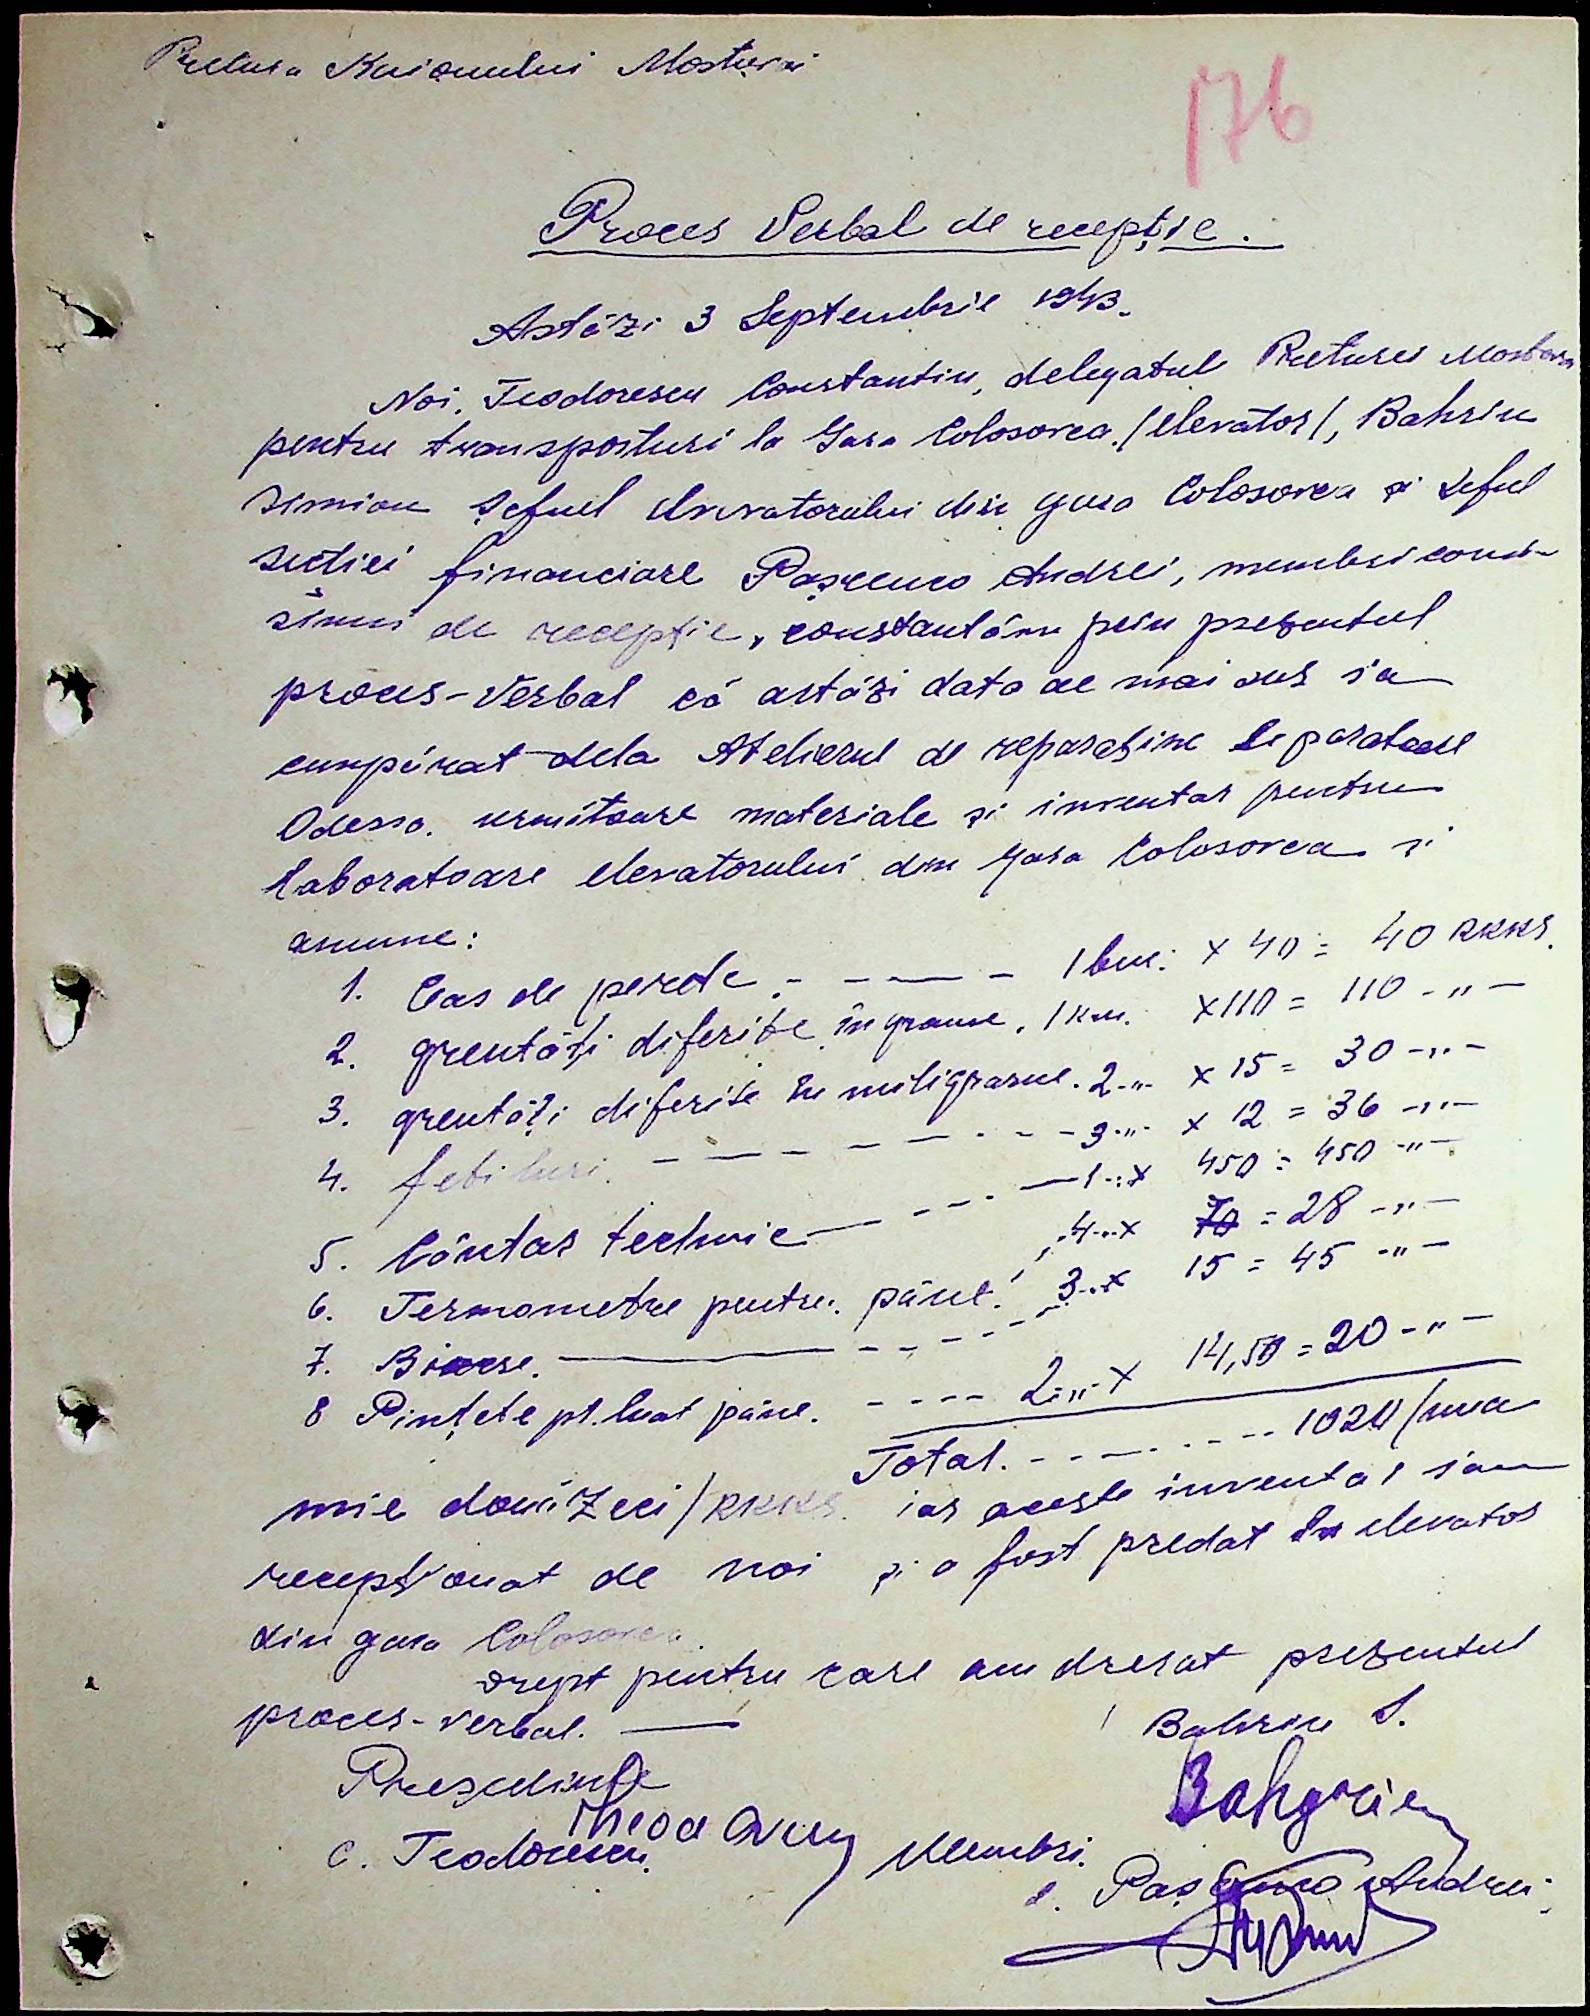 Pretura Raionului Mostovoi
176
Proces Verbal de recepție.
Astăzi 3 Septembrie 1943.
Noi, Teodorescu Constantin, delegatul Preturei Mostovoi
pentru transporturi la Gara Colosovca /elevator/, Bahrin
Simion Șeful elevatorului din gara Colosovca și șeful
secției financiare Pașcenco Andrei, membri comi-
siuni de recepție, constantăm prin prezentul
proces-verbal că astăzi data de mai sus s'a
cumpărat dela Atelierul de reparațiune
Odessa. urmitoare materiale și inventar pentru
laboratoare elevatorului din gara Colosovca și
anume:
1. Ceas de perete. - - - - 1 buc. x 40 = 40 RKKS.
2. greutăți diferite în grame. 1 x 110 = 110 -"-
3. greutăți diferite în miligrame. 2 -"- x 15 = 30 -"-
4. - - - - - - 3 -"- x 12 = 36 -"-
5. Cântar technic - - - - 1 -"- x 450 = 450 -"-
6. Termometre pentru pâine. 4 -"- x 70 = 28 -"-
7. - - - - 3 -"- x 15 = 45 -"-
8 Pințete pt. luat pâine. - - - - 2 -"- x 14,50 = 20 -"-
Total. - - - - - - 1020 /una
mie douăzeci/ RKKS. iar aceste inventar s'au
recepționat de noi și a fost predat la elevator
din gara Colosovca.
drept pentru care am dresat prezentul
proces-verbal. —
Bahrin S.
Președinte
C. Teodorescu
Membri.
Pașcenco Andrei